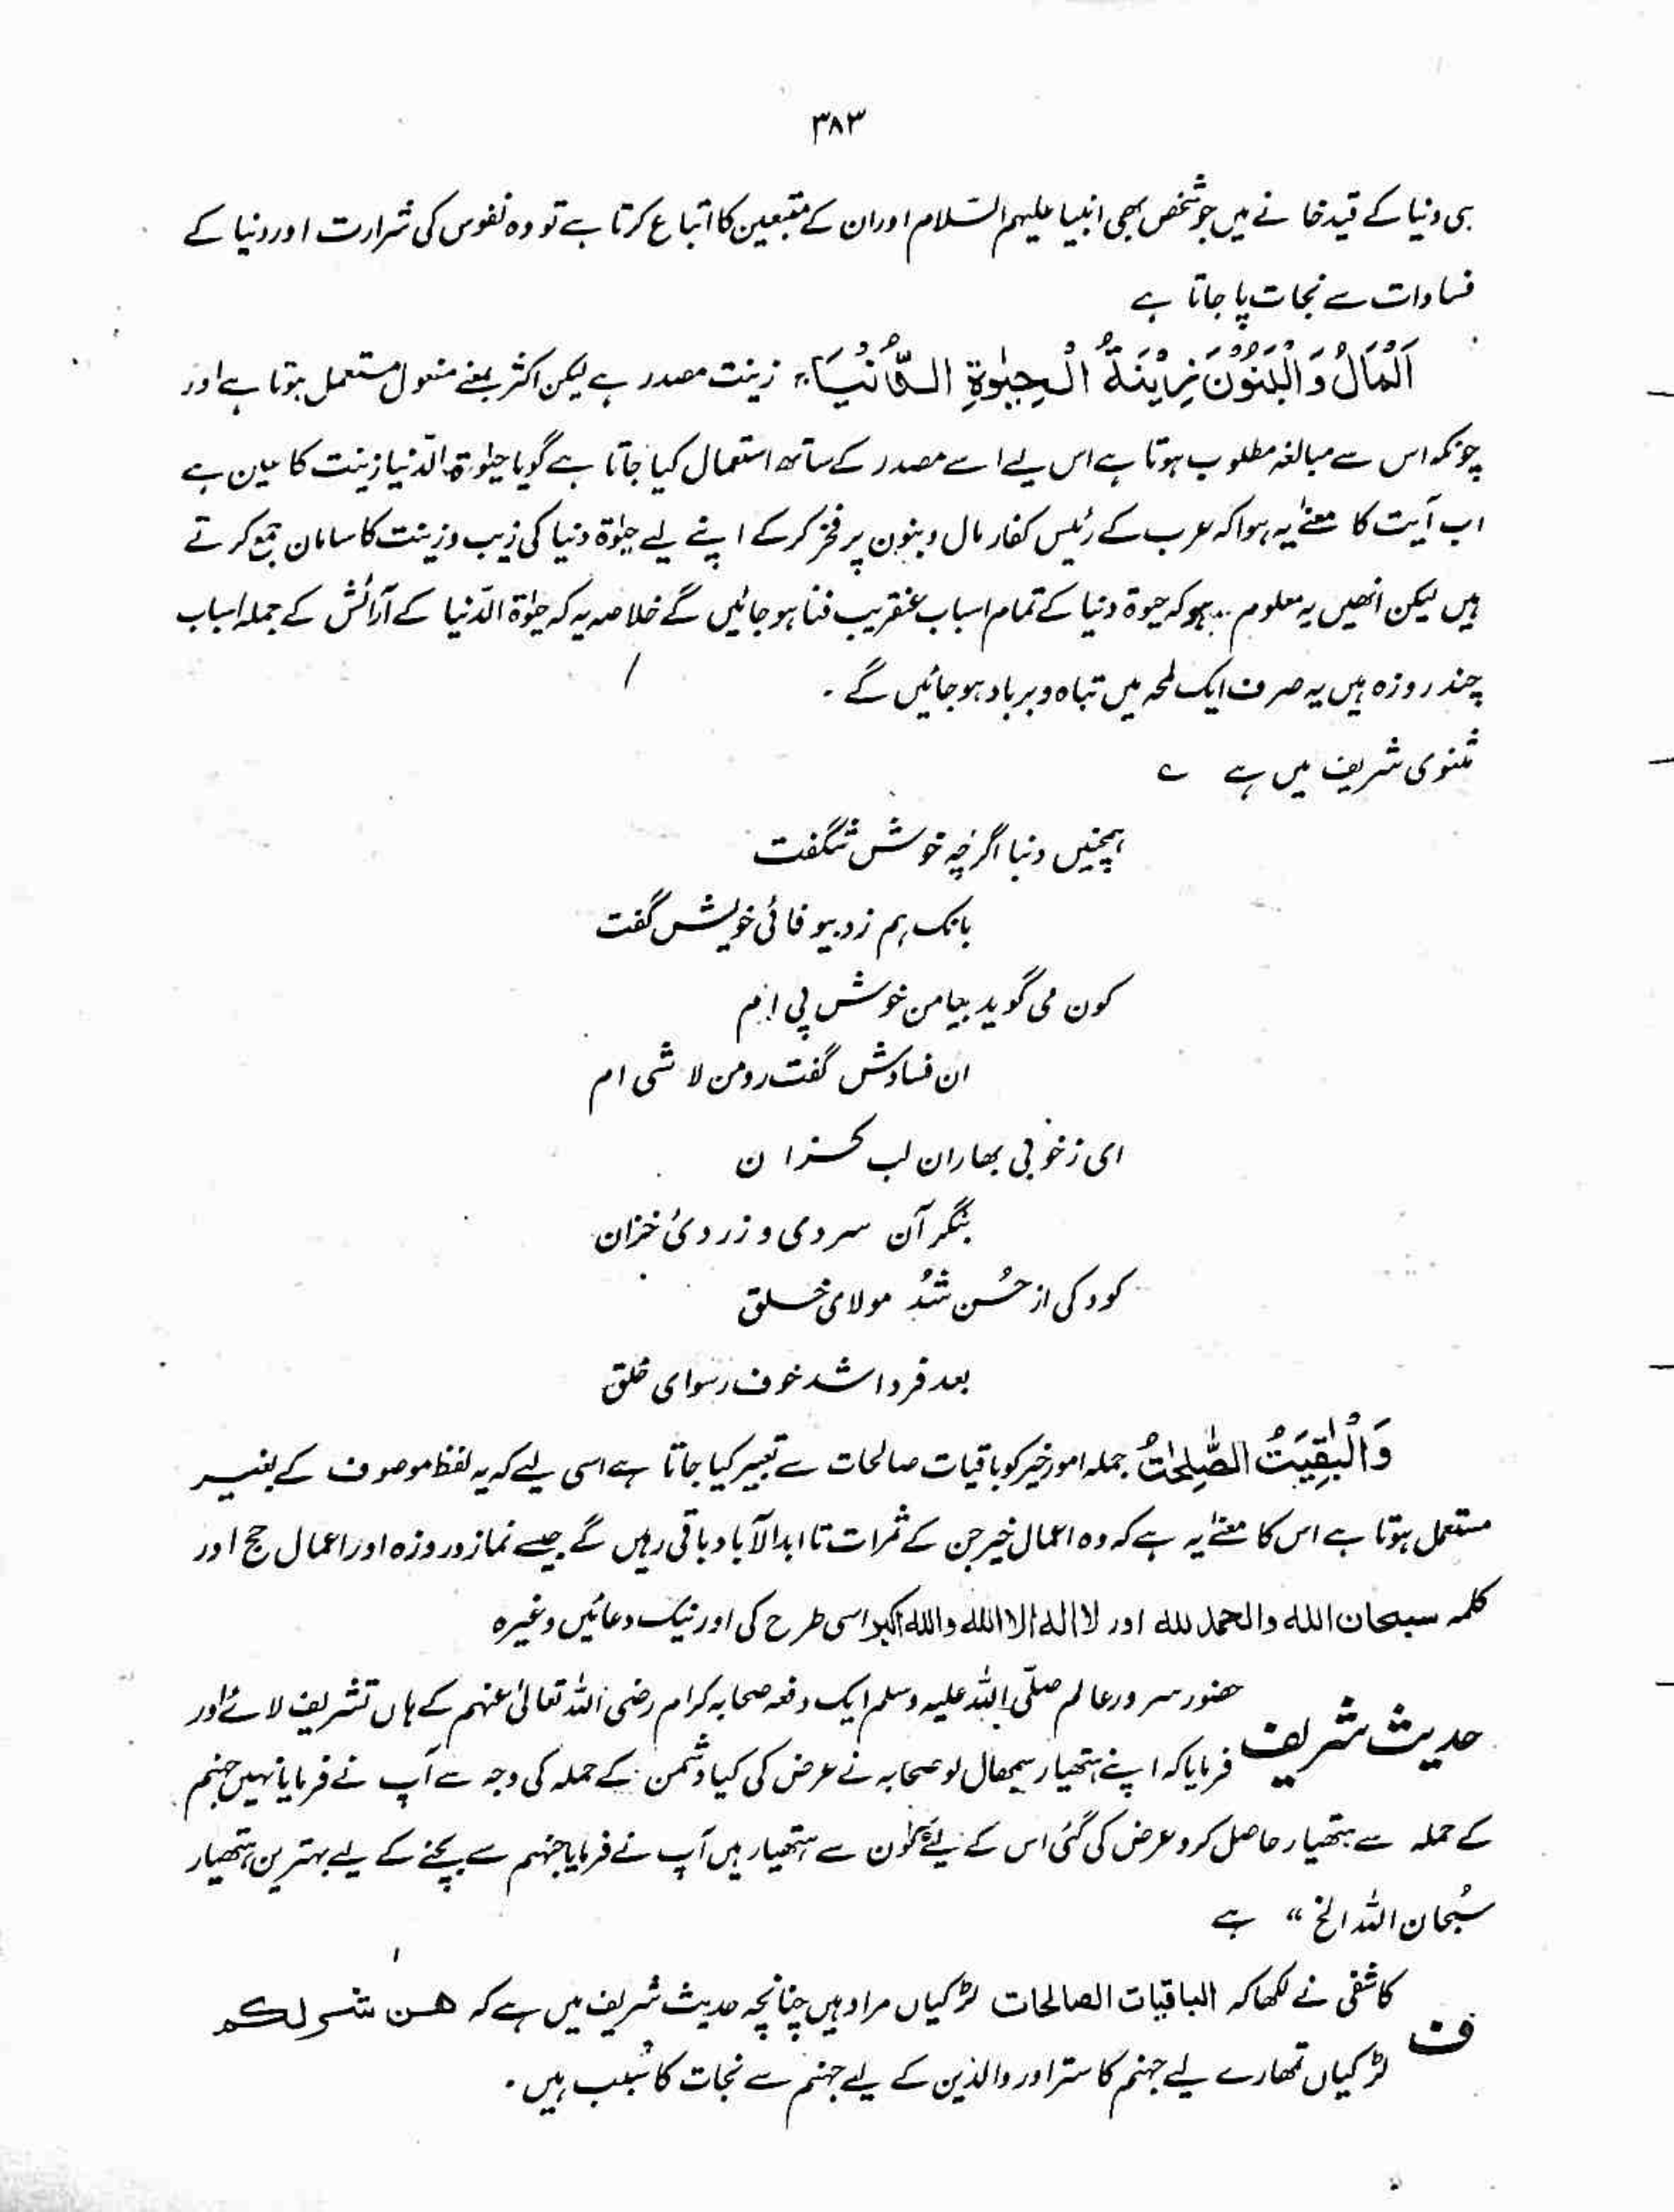 ۳۸۳
ہی دنیا کے قید خانے میں جو شخص بھی انبیا علیہم السّلام اور ان کے متبعین کا اتباع کرتا ہے تو وہ نفوس کی شرارت اور دنیا کے
فسادات سے نجات پا جاتا ہے
اَلْمَالُ وَالْبَنُوْنَ زِیْنَۃُ الْحَیٰوۃِ الدُّنْیَا، زینت مصدر ہے لیکن اکثر بمعنے مفعول مستعمل ہوتا ہے اور
چونکہ اس سے مبالغہ مطلوب ہوتا ہے اس لیے اسے مصدر کے ساتھ استعمال کیا جاتا ہے گویا حیٰوۃ الدّنیا زینت کا عین ہے
اب آیت کا معنےٰ یہ ہوا کہ عرب کے رئیس کفار مال و بنون پر فخر کر کے اپنے لیے حیٰوۃ دنیا کی زیب و زینت کا سامان جمع کرتے
ہیں لیکن انھیں یہ معلوم ہو کہ حیوۃ دنیا کے تمام اسباب عنقریب فنا ہو جائیں گے خلاصہ یہ کہ حیٰوۃ الدّنیا کے آرائش کے جملہ اسباب
چند روزہ ہیں یہ صرف ایک لمحہ میں تباہ و برباد ہو جائیں گے ۔
مثنوی شریف میں ہے ؎
ہمچنیں دنیا اگرچہ خوش شگفت
بانک ہم زد بیوفائی خویش گفت
کون می گوید بیامن خوش پی ام
ان فسادش گفت رو من لا شی ام
ای زخوبی بہاران لب گزان
بنگر آن سردی و زردیٔ خزان
کودکی از حُسن شُد مولای خلق
بعد فردا شد خوف رسوای خلق
وَالْبٰقِیٰتُ الصّٰلِحٰتُ جملہ امور خیر کو باقیات صالحات سے تعبیر کیا جاتا ہے اسی لیے کہ یہ لفظ موصوف کے بغیر
مستعمل ہوتا ہے اس کا معنےٰ یہ ہے کہ وہ اعمال خیر جن کے ثمرات تا ابد الآباد باقی رہیں گے جیسے نماز و روزہ اور اعمال حج اور
کلمہ سبحان اللہ والحمد للہ اور لا الہ الا اللہ واللہ اکبر اسی طرح کی اور نیک دعائیں وغیرہ
حدیث شریف حضور سرور عالم صلّی اللہ علیہ وسلم ایک دفعہ صحابہ کرام رضی اللہ تعالیٰ عنہم کے ہاں تشریف لائے اور
فرمایا کہ اپنے ہتھیار سبھال لو صحابہ نے عرض کی کیا دشمن کے حملہ کی وجہ سے آپ نے فرمایا نہیں جہنم
کے حملہ سے ہتھیار حاصل کرو عرض کی گئی اس کے لیے کون سے ہتھیار ہیں آپ نے فرمایا جہنم سے بچنے کے لیے بہترین ہتھیار
سُبحان اللہ الخ “ ہے
ف کاشفی نے لکھا کہ الباقیات الصالحات لڑکیاں مراد ہیں چنانچہ حدیث شریف میں ہے کہ ھن ستر لکم
لڑکیاں تمھارے لیے جہنم کا ستر اور والدین کے لیے جہنم سے نجات کا سبب ہیں ۔